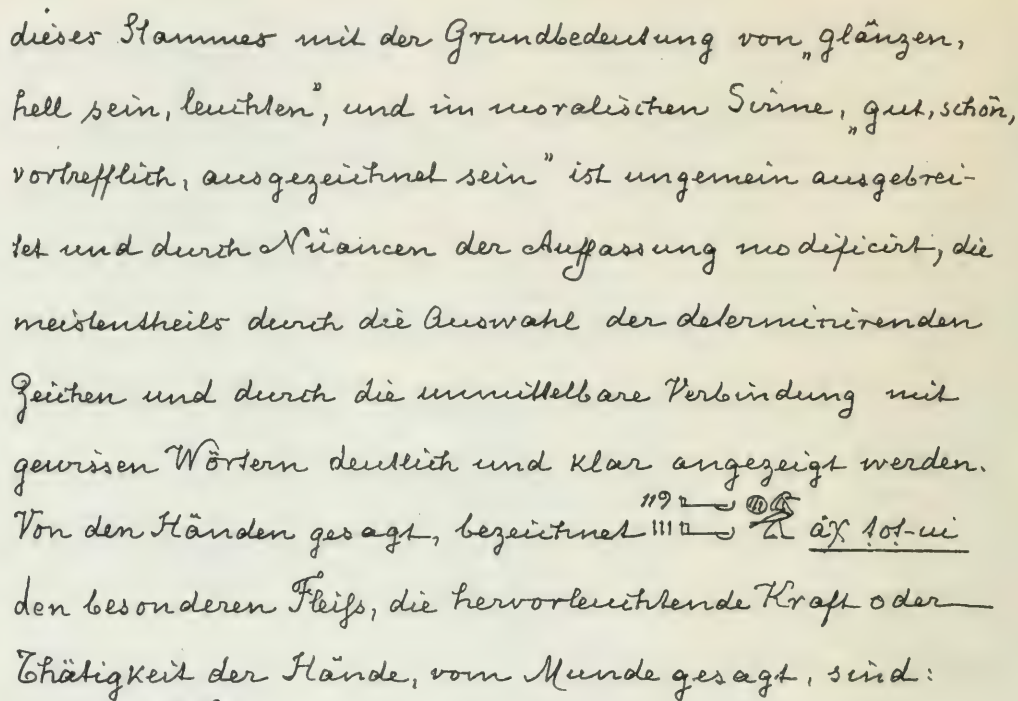 dieses Stammes mit der Grundbedeutung von „glänzen,
hell sein, leuchten”, und im moralischen Sinne, „gut, schön,
vortrefflich, ausgezeichnet sein” ist ungemein ausgebrei-
tet und durch Nüancen der Auffassung modificirt, die
meistentheils durch die Auswahl der determinirenden
Zeichen und durch die unmittelbare Verbindung mit
gewissen Wörtern deutlich und klar angezeigt werden.
Von den Händen gesagt, bezeichnet āχ tot-ui
den besonderen Fleiſs, die hervorleuchtende Kraft oder
Thätigkeit der Hände, vom Munde gesagt, sind: